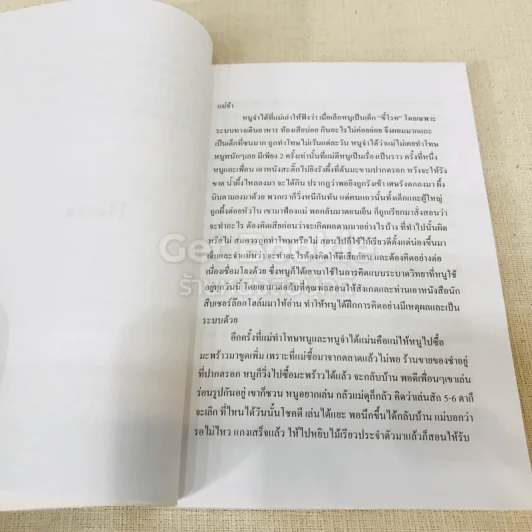 แม่จ๋า
หนูจำได้ที่แม่เล่าให้ฟังว่า เมื่อเล็กหนูเป็นเด็ก "ขี้โรค" โดยเฉพาะ
ระบบทางเดินอาหาร ท้องเสียบ่อย กินอะไรไม่ค่อยย่อย จึงผอมมากและ
เป็นเด็กที่ซนมาก ถูกทำโทษไม่เว้นแต่ละวัน หนูจำได้ว่าแม่ไม่เคยทำโทษ
หนูหนักๆเลย มีเพียง 2 ครั้งเท่านั้นที่แม่ตีหนูเป็นเรื่องเป็นราว ครั้งที่หนึ่ง
หนูและเพื่อน เอาหนังสะติ๊กไปยิงรังผึ้งที่ต้นมะขามปากตรอก หวังจะให้รัง
ขาด น้ำผึ้งไหลลงมา จะได้กิน ปรากฏว่าพอยิงถูกรังเข้า เศษรังตกลงมา ผึ้ง
บินตามลงมาด้วย พวกเราก็วิ่งหนีกันทัน แต่คนแถวนั้นทั้งเด็กและผู้ใหญ่
ถูกผึ้งต่อยหัวโน เขามาฟ้องแม่ พอกลับมาตอนเย็น ก็ถูกเรียกมาสั่งสอนว่า
จะทำอะไร ต้องคิดเสียก่อนว่าจะเกิดผลตามมาอย่างไรบ้าง ที่ทำไปนั้นคิด
หรือไม่ สมควรถูกทำโทษหรือไม่ สอนไปก็ใช้ไม้เรียวตีตั้งแต่น่องขึ้นมา
เจ็บและจำแม่นว่า จะทำอะไรต้องคิดให้ดีเสียก่อน และต้องคิดอย่างต่อ
เนื่องเชื่อมโยงด้วย ซึ่งหนูก็ได้เอามาใช้ในการคิดแบบระบาดวิทยาที่หนูใช้
อยู่ทุกวันนี้ โดยเอามาต่อที่คุณพ่อสอนให้สังเกตและท่านเอาหนังสือนัก
สืบเชอร์ล๊อกโฮล์มมาให้อ่าน ทำให้หนูได้ฝึกการคิดอย่างมีเหตุผลและเป็น
ระบบด้วย
อีกครั้งที่แม่ทำโทษหนูและหนูจำได้แม่นคือแม่ให้หนูไปซื้อ
มะพร้าวมาขูดเพิ่ม เพราะที่แม่ซื้อมาจากตลาดแล้วไม่พอ ร้านขายของชำอยู่
ที่ปากตรอก หนูก็วิ่งไปซื้อมะพร้าวได้แล้ว จะกลับบ้าน พอดีเพื่อนๆเขาเล่น
ร่อนรูปกันอยู่ เขาก็ชวน หนูอยากเล่น กลัวแม่ดุก็กลัว คิดว่าเล่นสัก 5-6 ตาก็
จะเลิก ที่ไหนได้วันนั้นโชคดี เล่นได้แยะ พอนึกขึ้นได้กลับบ้าน แม่บอกว่า
รอไม่ไหว แกงเสร็จแล้ว ให้ไปหยิบไม้เรียวประจำตัวมาแล้วก็สอนให้รับ